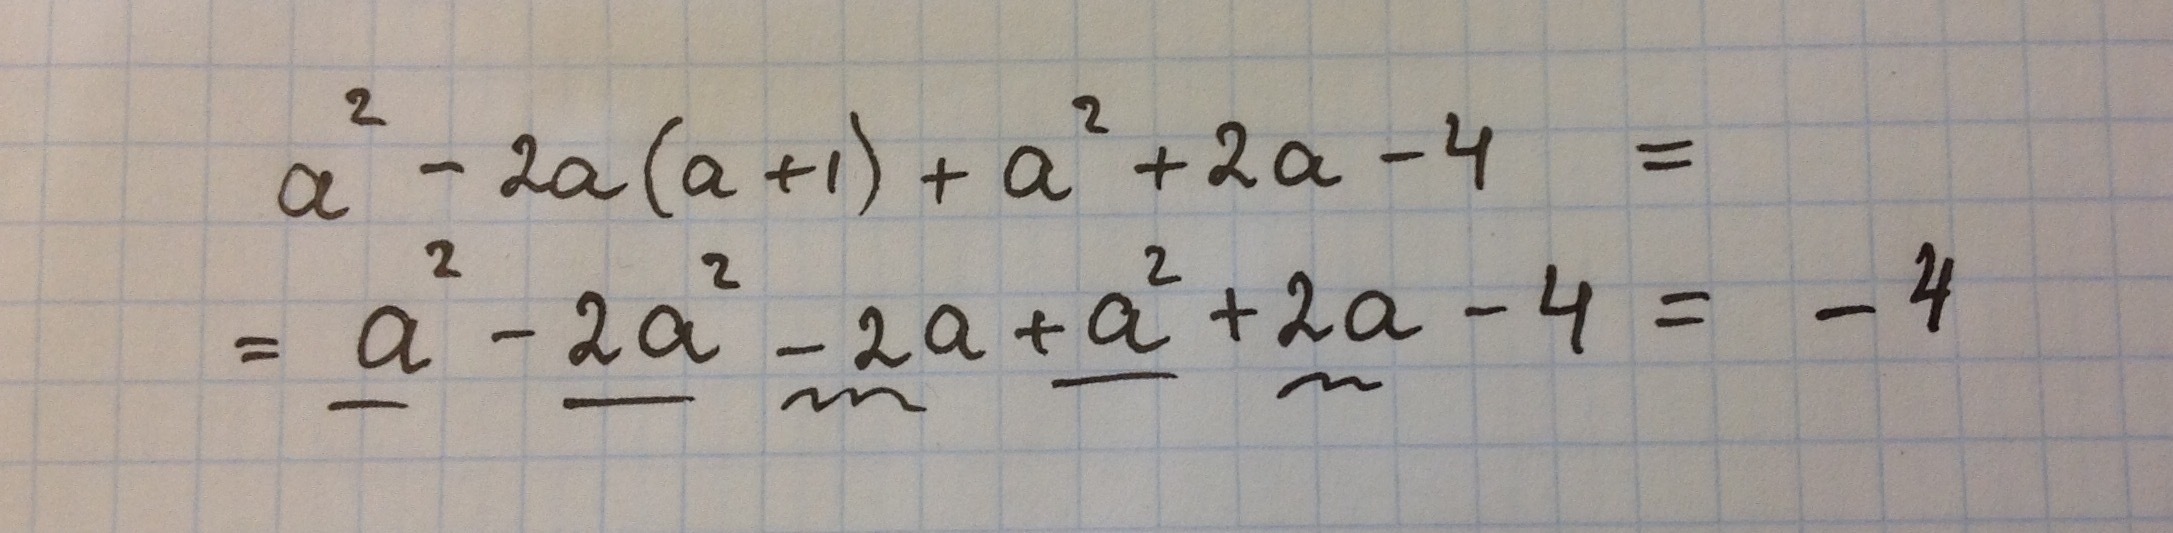 a² - 2a(a+1) + a² + 2a - 4 =
= a² - 2a² - 2a + a² + 2a - 4 = - 4